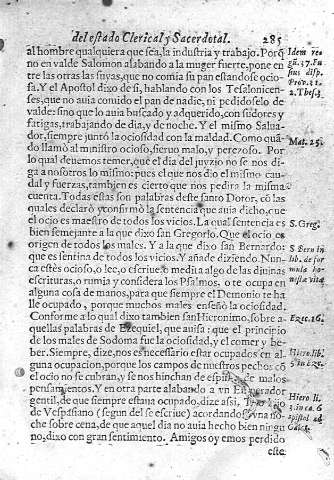 del estado Clerical y Sacerdotal. 285
al hombre qualquiera que sea, la industria y trabajo. Porq̃
no en valde Salomon alabando a la muger fuerte, pone en
tre las otras las suyas, que no comia su pan estandose ocio
sa. Y el Apostol dixo de si, hablando con los Tesalonicen-
ses, que no auia comido el pan de nadie, ni pedidoselo de
valde: sino que lo auia buscado y adquerido, con sudores y
fatigas, trabajando de dia, y de noche. Y el mismo Salua-
dor, siempre juntò la ociosidad con la maldad. Como quã
do llamò al ministro ocioso, sieruo malo, y perezoso. Por
lo qual deuemos temer, que el dia del juyzio no se nos di-
ga a nosotros lo mismo: pues el que nos dio el mismo cau-
dal y fuerzas, tambien es cierto que nos pedira la misma
cuenta. Todas estas son palabras deste santo Dotor, cõ las
quales declarò y confirmò la sentencia que auia dicho, que
el ocio es maestro de todos los vicios. La qual sentencia es
bien semejante a la que dixo san Gregorio. Que el ocio es
origen de todos los males. Y a la que dixo san Bernardo:
que es sentina de todos los vicios. Y añade diziendo. Nun
ca estès ocioso, o lee, o escriue, o medita algo de las diuinas
escrituras, o rumia y considera los Psalmos, o te ocupa en
alguna cosa de manos, para que siempre el Demonio te ha
lle ocupado, porque muchos males enseñò la ociosidad.
Conforme a lo qual dixo tambien san Hieronimo, sobre a-
quellas palabras de Ezequiel, que auisa: que el principio
de los males de Sodoma fue la ociosidad, y el comer y be-
ber. Siempre, dize, nos es necessario estar ocupados en al-
guna ocupacion, porque los campos de nuestros pechos cõ
el ocio no se cubran, y se nos hinchan de espinas de malos
pensamientos. Y en otra parte alabando a vn Emperador
gentil, de que siempre estaua ocupado, dize assi. Tito hijo
de Vespasiano (segun del se escriue) acordandose vna no-
che sobre cena, de que aquel dia no auia hecho bien ningu
no, dixo con gran sentimiento. Amigos oy emos perdido
este
Idem
Mat. 25.
S. Greg.
S Bern in
Ezec. 16.
Hiero. lib.
Hiero li.